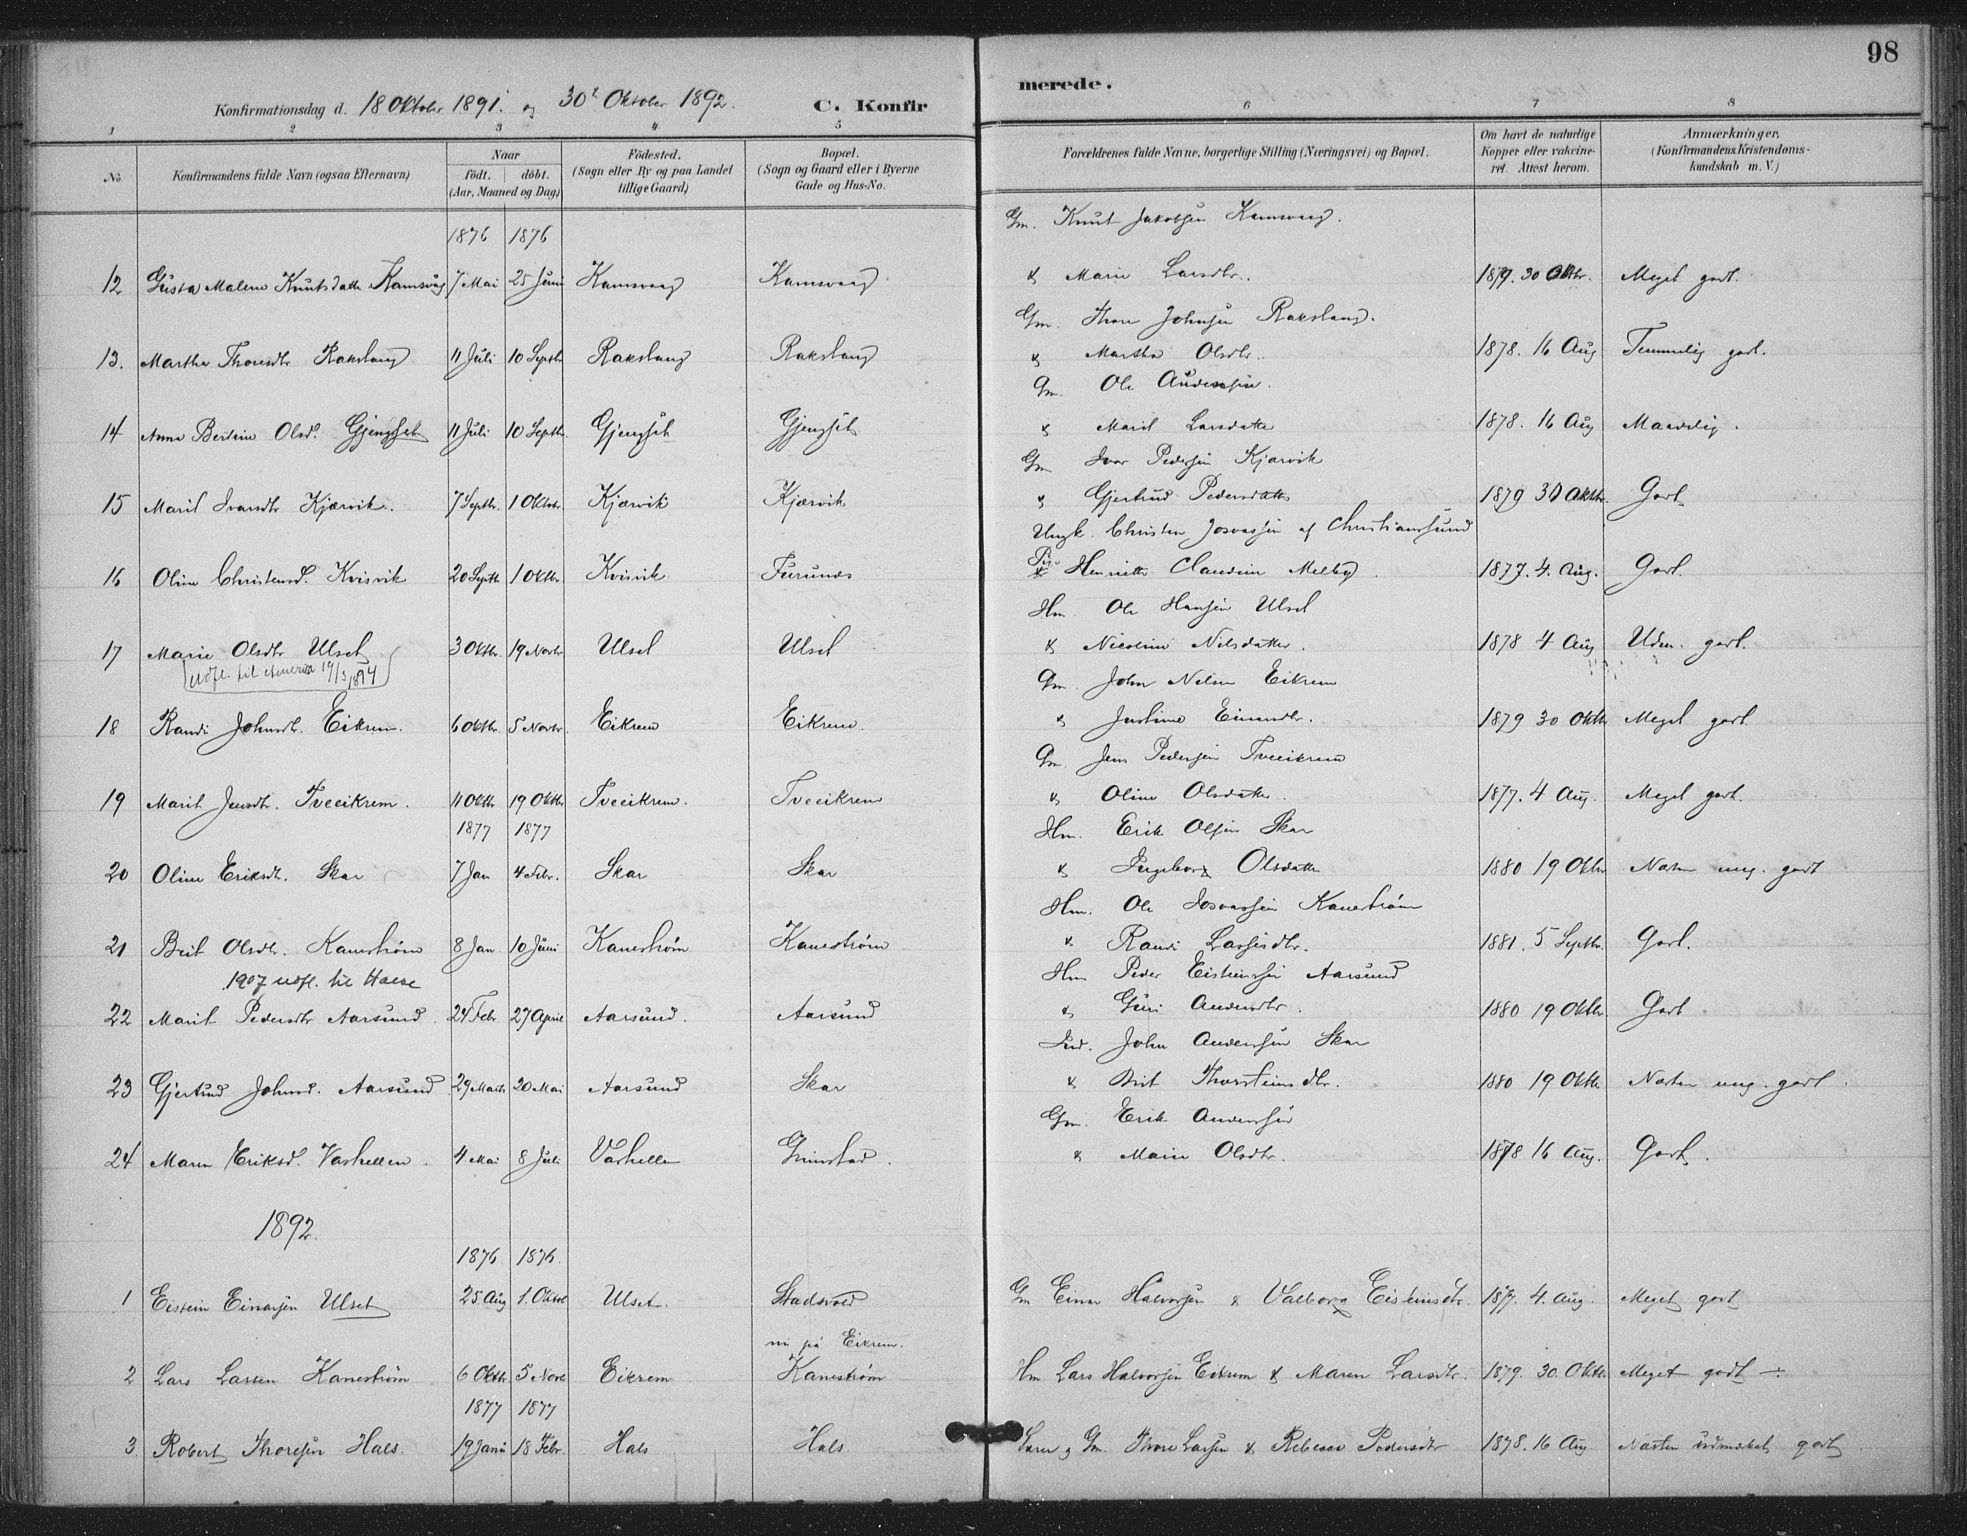 98
Konfirmationsdag d. 18 Oktober 1891. og 30te Oktober 1892. C. Konfirmerede.
1 2 3 4 5 6 7 8
No. Konfirmandens fulde Navn (ogsaa Efternavn) Naar födt. döbt. (Aar, Maaned og Dag) Födested. (Sogn eller By og paa Landet tillige Gaard) Bopæl. (Sogn og Gaard eller i Byerne Gade og Hus-No. Forældrenes fulde Navne, borgerlige Stilling (Næringsvei) og Bopæl. Om havt de naturlige Kopper eller vakcineret. Attest herom. Anmærkninger. (Konfirmandens Kristendomskundskab m. V.)
1876 1876 Gm. Knut Jakobsen Kamsvaag.
12 Gusta Malene Knutsdatter Kamsvåg 7 Mai 25 Juni Kamsvaag Kamsvaag & Marie Larsdtr. 1879. 30 Oktbr. Meget godt.
Gm. Thore Johnsen Rakslaug.
13. Martha Thoresdtr Rakslaug 11 Juli 10 Septbr Rakslaug Rakslaug & Martha Olsdtr. 1878. 16 Aug Temmelig godt.
Gm. Ole Andersen.
14 Anna Bertine Olsd. Gjengset 11 Juli 10 Septbr. Gjengset Gjengset & Marit Larsdatter 1878. 16 Aug Maadelig.
Gm Ivar Pedersen Kjærvik
15 Marit Ivarsdtr Kjærvik. 7 Septbr. 1 Oktobr Kjærvik Kjærvik & Gjertrud Pedersdatter 1879 30 Oktbr. Godt
Ungk. Christen Josvassen af Christianssund
16 Oline Christensd. Kvisvik 20 Septb 1 Oktbr. Kvisvik Furunes Pige & Henriette Claudine Melby 1877. 4. Aug. Godt.
Hm. Ole Hansen Ulset
17 Marie Olsdtr Ulset 3 Oktbr. 19 Novbr Ulset Ulset & Nicoline Nilsdatter. 1878 4 Aug Udm. godt.
Udfl. til Amerika 19/3 1894
Gm. John Nelsen Eikrem
18 Randi Johnsdtr. Eikrem. 6 Oktbr. 5 Novbr. Eikrem Eikrem. & Justine Einarsdtr. 1879 30 Oktbr Meget godt.
Gm. Jens Pedersen Tveeikrem
19 Marit Jensdtr. Tveeikrem. 11 Oktbr 19 Oktbr Tveeikrem. Tveeikrem & Oline Olsdatter. 1877. 4 Aug. Meget godt.
1877 1877 Hm. Erik Olsen Skar
20 Oline Eriksdtr. Skar 7 Jan 4 Febr. Skar Skar & Ingeborg Olsdatter 1880 19 Oktbr Næsten meg. godt
Hm. Ole Josvassen Kanestrøm
21 Brit Olsdtr. Kanestrøm 8 Jan 10 Juni Kanestrøm Kanestrøm & Randi Lassesdtr. 1881. 5 Septbr. Godt.
1907 udfl. til Halse
Hm Peder Eisteinsen Aarsund
22 Marit Pedersdtr Aarsund. 24 Febr. 27 April Aarsund. Aarsund & Guri Andersdtr. 1880 19 Oktbr Godt.
Ind. John Andersen Skar
23 Gjertrud Johnsd. Aarsund 29 Marts 20 Mai Aarsund Skar & Brit Thorsteinsdtr. 1880 19 Oktbr Næsten meg. godt.
Gm. Erik Andersen
24 Maren Eriksd. Vashellen. 4 Mai 8 Juli Vashellen Grimstad. & Marie Olsdtr. 1878 16 Aug. Godt.
1892.
1876 1876.
1 Eistein Einarsen Ulset 25 Aug 1. Oktob Ulset. Stadsvold Gm Einar Halvorsen & Valborg Eisteinsdtr. 1877. 4. Aug. Meget godt
nu på Eikrem.
2 Lars Larsen Kanestrøm 6 Oktbr 5 Novb Eikrem Kanestrøm Hm Lars Halvorsen Eikrem & Maren Larsdtr. 1879. 30. Oktbr Meget godt ÷
1877 1877
3 Robert Thoresen Hals. 19 Janu 18 Febr. Hals Hals. Gm. Thore Larsen & Rebecca Pedersdtr 1878. 16 Aug Næsten udmerket godt